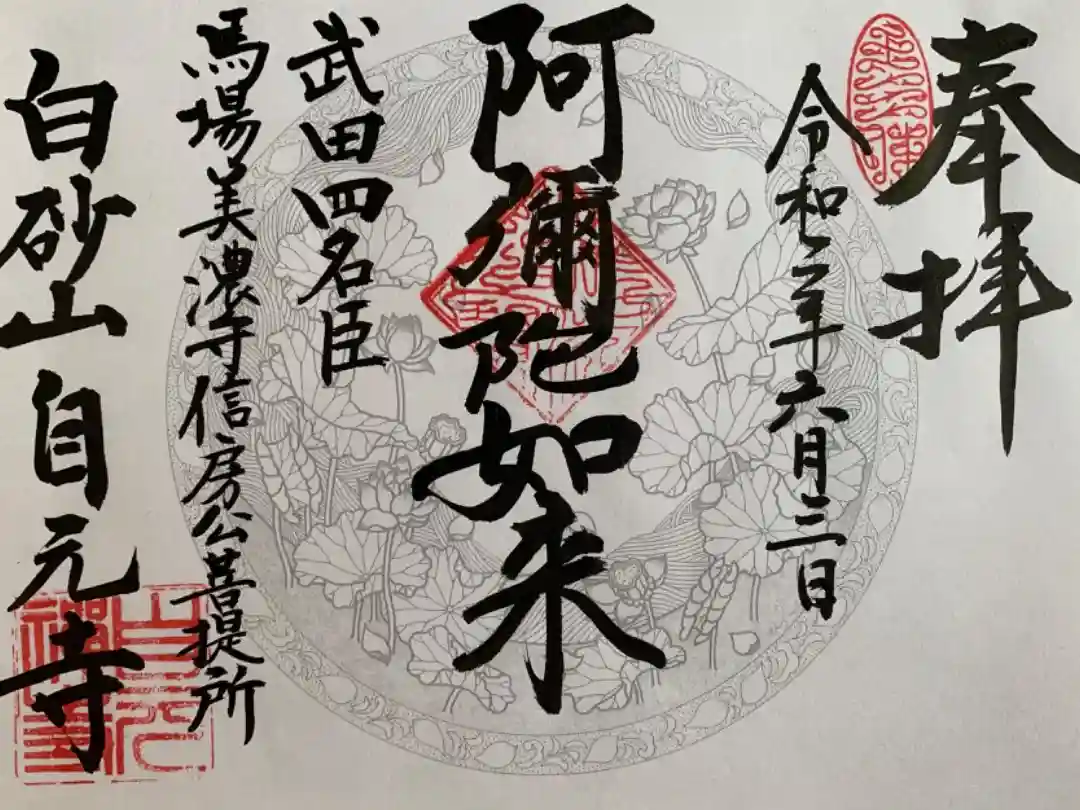 奉拝
令和三年六月三日
阿彌陀如来
武田四名臣
馬場美濃守信房公菩提所
白砂山自元寺